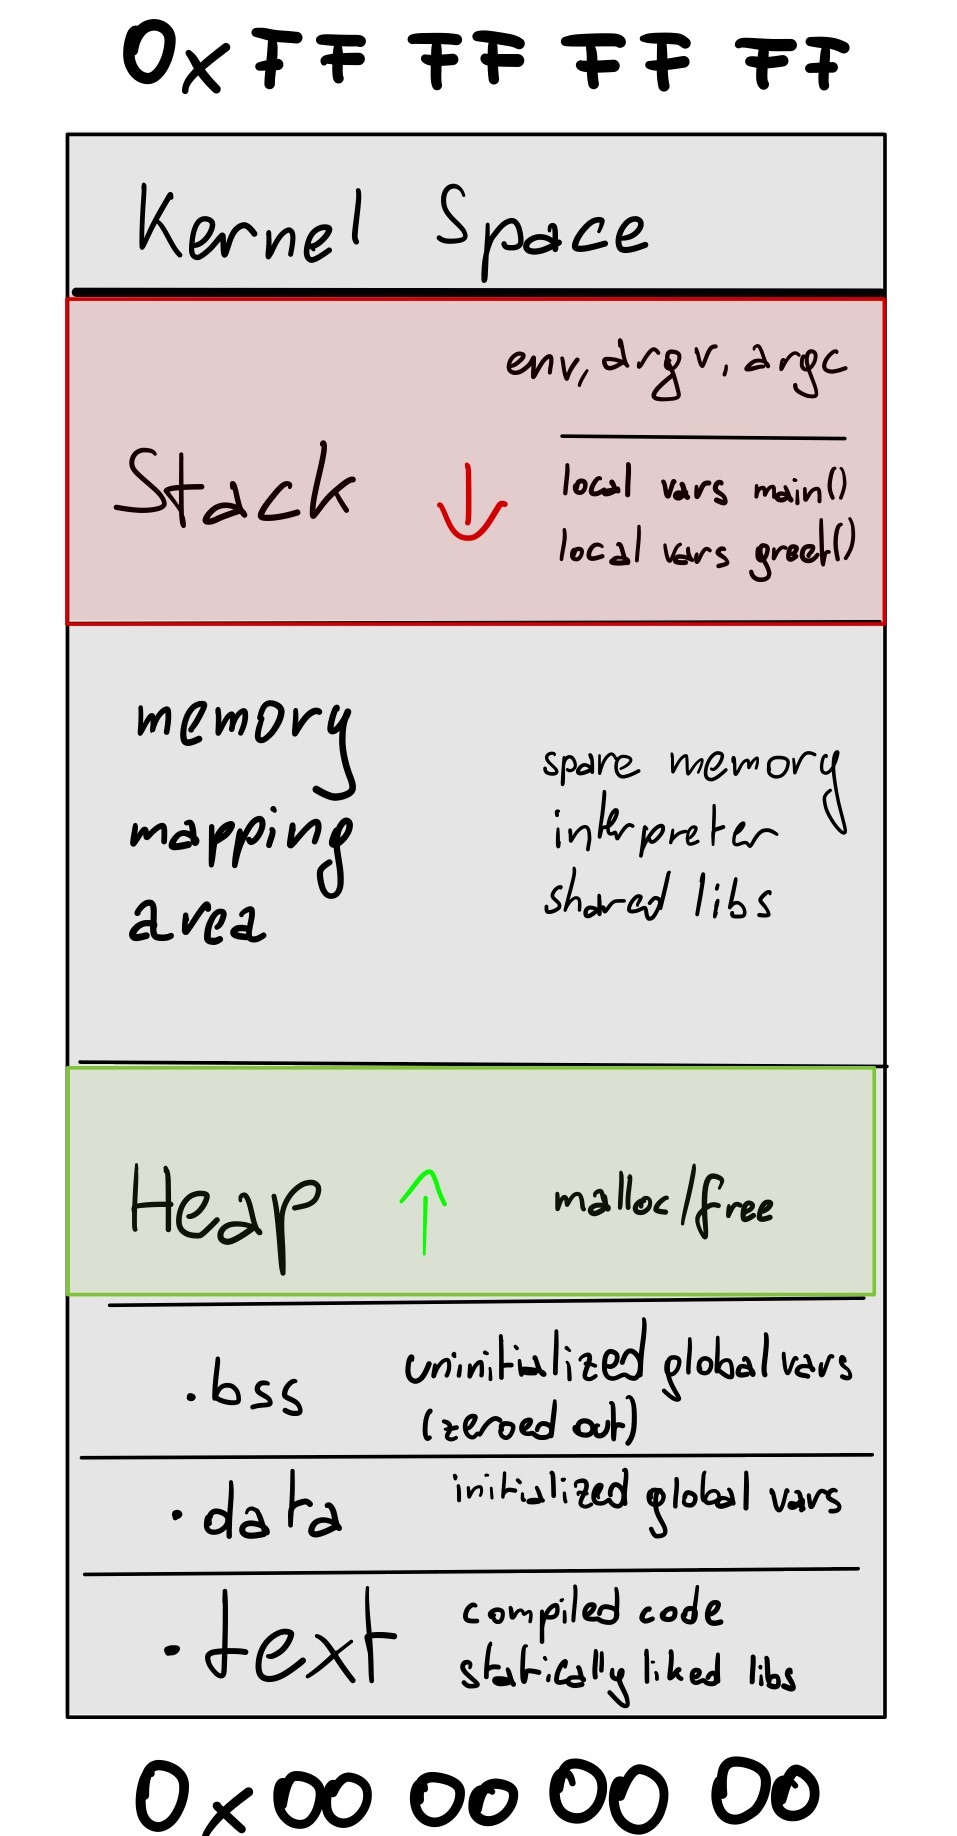 0x FF FF FF FF
Kernel Space
env, argv, argc
Stack ↓
local vars main()
local vars greet()
memory
mapping
area
spare memory
interpreter
shared libs
Heap ↑ malloc/free
.bss uninitialized global vars
(zeroed out)
.data initialized global vars
.text compiled code
statically liked libs
0x 00 00 00 00